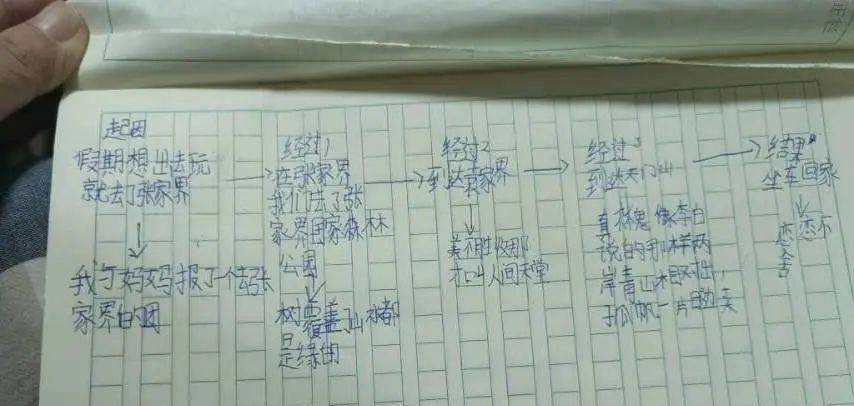 起因
假期想出法玩
就去了张家界
我与妈妈报了一个去张
家界的团
经过1
在张家界
我们去了张
家界国家森林
公园
树
覆盖了山水都
是绿的
经过2
到达袁家界
美不胜收那
才叫人间天堂
经过3
到达天门山
真
像李白
说的那样两
岸青山相对出,
孤帆一片日边来
结果
坐车回家
恋恋不
舍